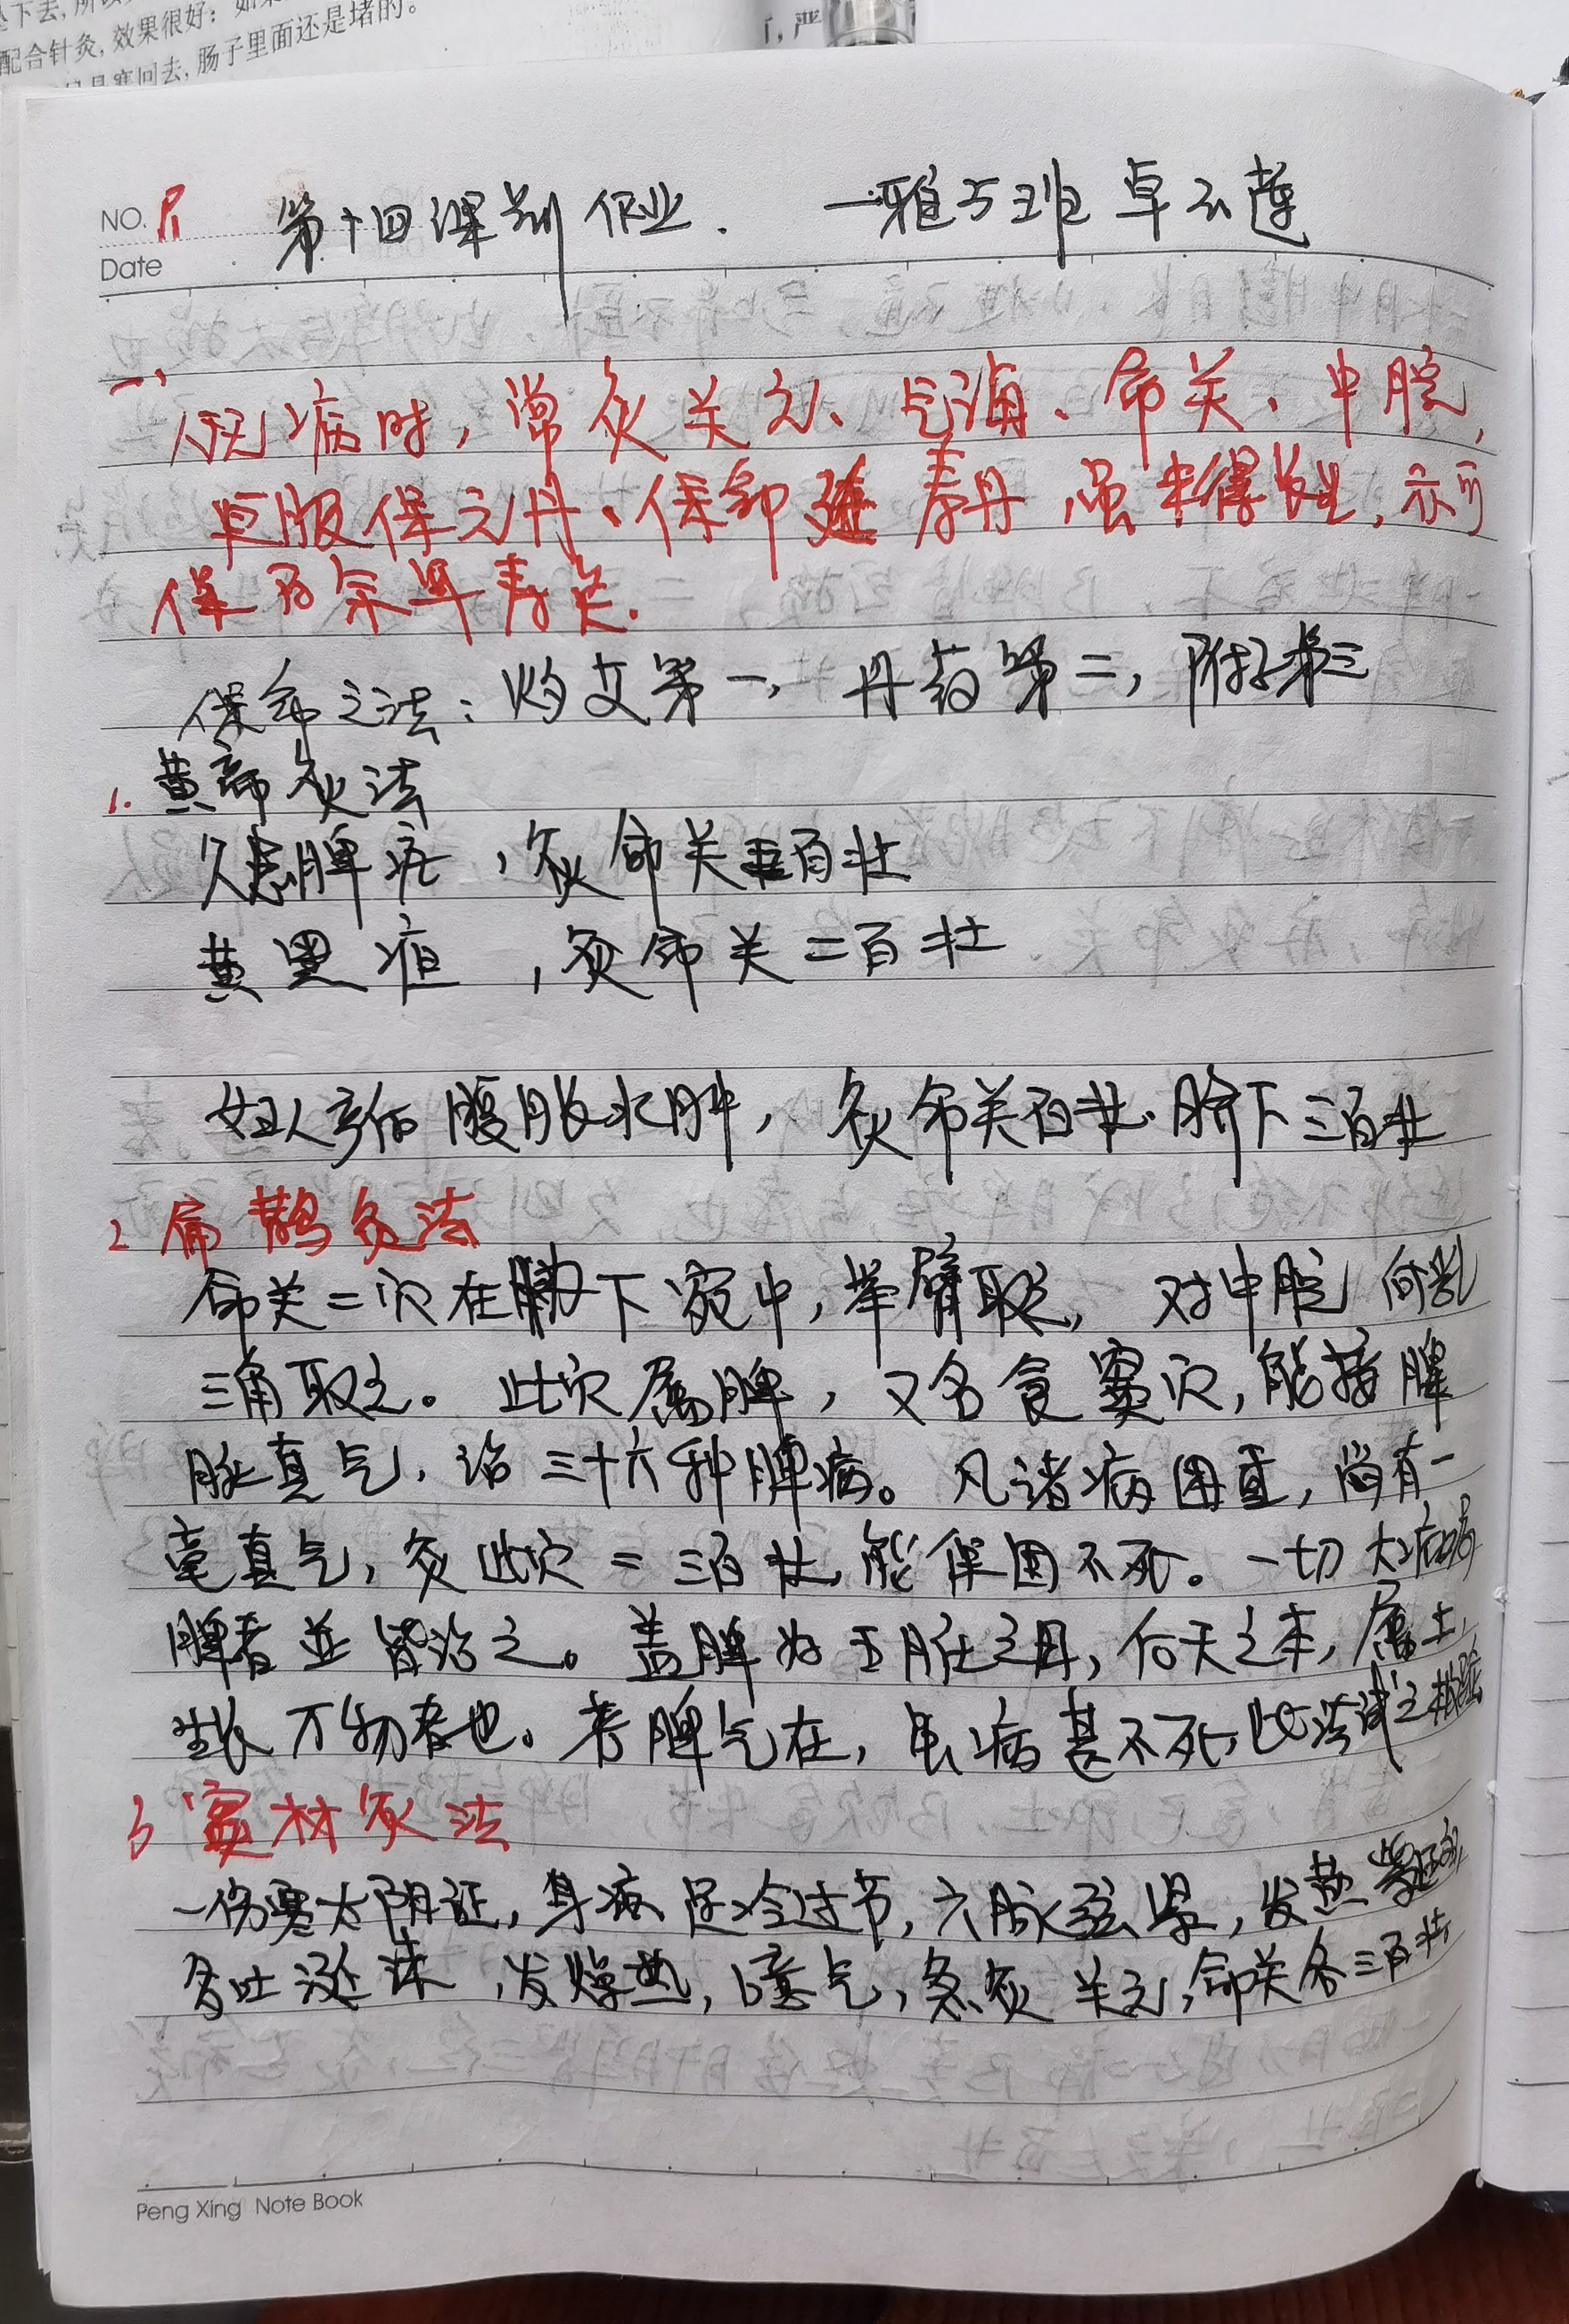 配合针灸,效果很好:
肠子里面还是堵的。
NO. P1 第十四课 作业. 一雅5班 卓云莲
Date
一、
人无病时,常灸关元、气海、命关、中脘,
更服保元丹、保命延寿丹 虽未得长生,亦可
保百余年寿矣.
保命之法:灼艾第一,丹药第二,附子第三
1.黄帝灸法
久患脾疟,灸命关五百壮
黄黑疸,灸命关二百壮
妇人产后腹胀水肿,灸命关百壮.脐下三百壮
2 扁鹊灸法
命关二穴在胁下宛中,举臂取之,对中脘向乳
三角取之。此穴属脾,又名食窦穴,能接脾
脏真气,治三十六种脾病。凡诸病困重,尚有一
毫真气,灸此穴二三百壮,能保固不死。一切大病属
脾者並皆治之。盖脾为五脏之母,后天之本,属土,
生长万物者也。若脾气在,虽病甚不死,此法试之极验
3 窦材灸法
一伤寒太阴证,身痛足冷过节,六脉弦紧,发黄紫斑,
多吐涎沫,发燥热,噫气,急灸关元,命关各三百壮
Peng Xing Note Book